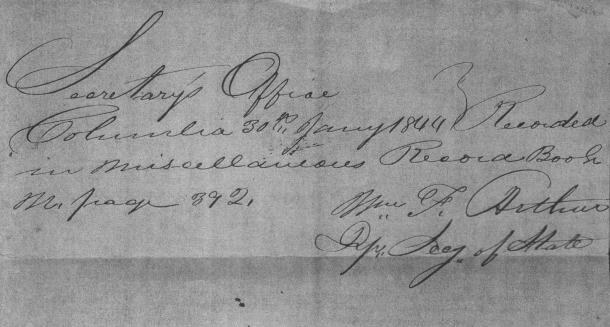 Secretary's Office
Columbia 30th Jany 1844 } Recorded
in Miscellaneous Record Book
M. page 392.
Wm F. Arthur
Dpy. Secy. of State